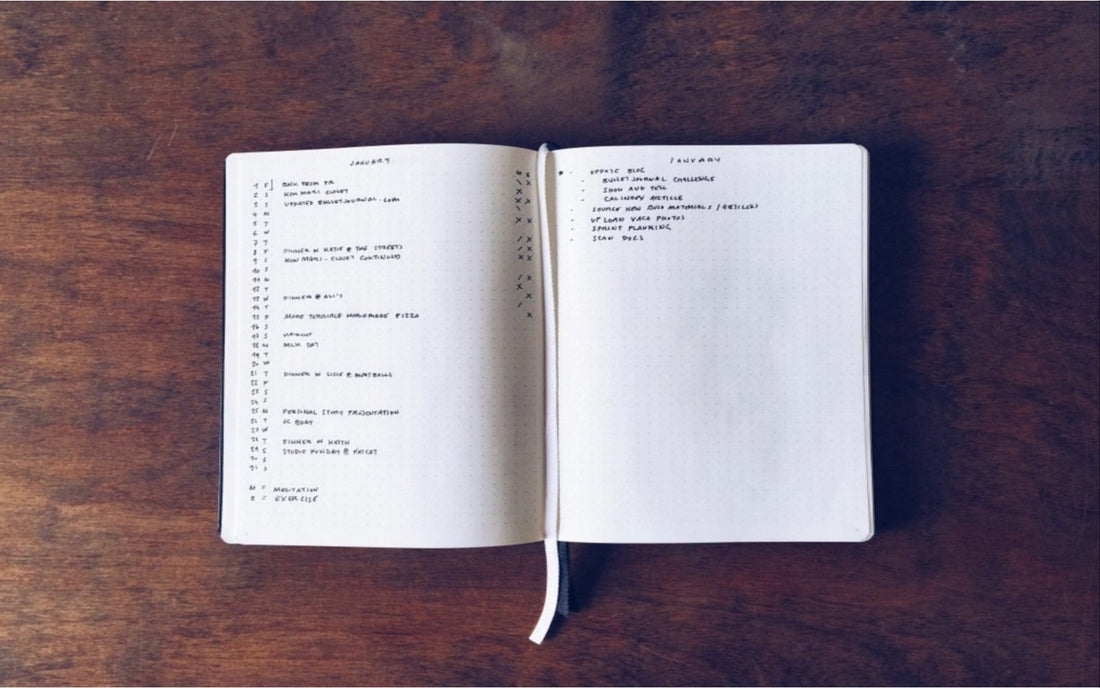 JANUARY
M E
1 F BACK FROM PR
2 S KON MARI CLOSET
3 S UPDATED BULLETJOURNAL.COM
4 M
5 T
6 W
7 T
8 F DINNER W KATIE @ THE STREETS
9 S KON MARI - CLOSET CONTINUED
10 S
11 M
12 T
13 W DINNER @
14 T
15 F MADE TERRIBLE HOMEMADE PIZZA
16 S
17 S HAIRCUT
18 M MLK DAY
19 T
20 W
21 T DINNER W @ MEATBALLS
22 F
23 S
24 S
25 M PERSONAL STORY PRESENTATION
26 T JC BDAY
27 W
28 T DINNER W KEITH
29 F STUDIO SUNDAY @
30 S
31 S
M = MEDITATION
E = EXERCISE
JANUARY
UPDATE BLOG
BULLET JOURNAL CHALLENGE
SHOW AND TELL
CALENDAR ARTICLE
SOURCE NEW BUJO MATERIALS / ARTICLES
UPLOAD VACA PHOTOS
SPRINT PLANNING
SCAN DOCS